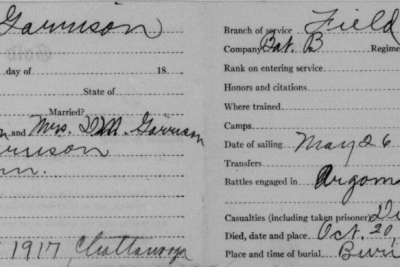 Garrison
day of 18
State of
Married?
and Mrs. I.M. Garrison
1917 Chattanooga
Branch of service Field
Company Bat. B Regime
Rank on entering service
Honors and citations
Where trained
Camps
Date of sailing May 26
Transfers
Battles engaged in Argonn
Casualties (including taken prisoner) Di
Died, date and place Oct. 20
Place and time of burial Buri